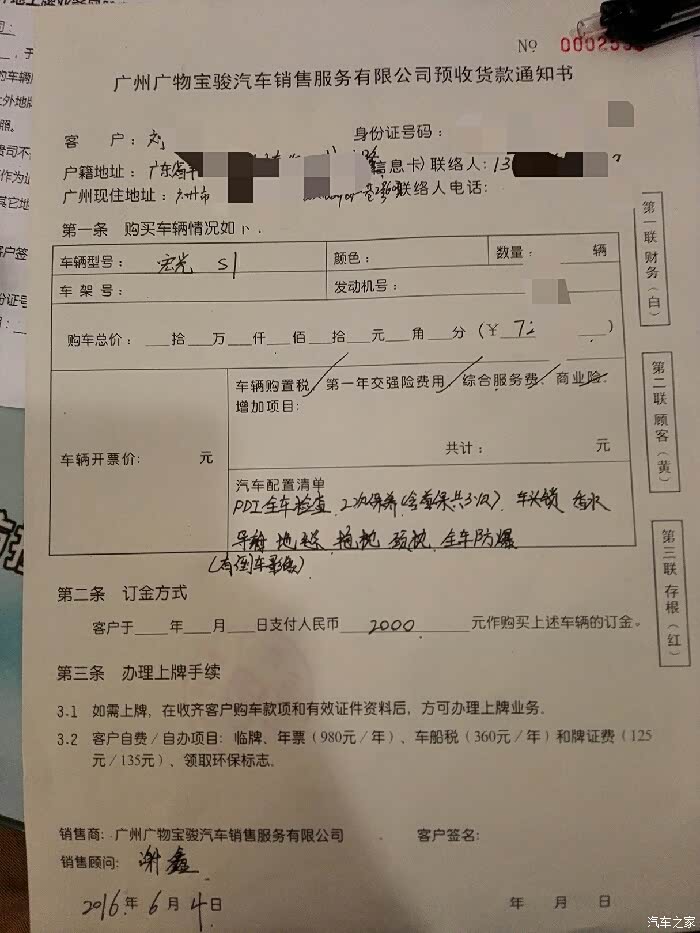 № 0002
广州广物宝骏汽车销售服务有限公司预收货款通知书
客 户： 身份证号码：
户籍地址：广东省 信息卡）联络人：13
广州现住地址：广州市 联络人电话：
第一条 购买车辆情况如下：
车辆型号：宏光 S1 颜色： 数量： 辆
车 架 号： 发动机号：
购车总价：___拾___万___仟___佰___拾___元___角___分（￥ 72 ）
车辆购置税 第一年交强险费用 综合服务费、商业险
增加项目：
共计： 元
车辆开票价： 元
汽车配置清单
PDI全车检查 2次保养（含首保共3次） 车头锁 香水
导航 地毯 抱枕 颈枕 全车防爆
（有倒车影像）
第二条 订金方式
客户于____年____月____日支付人民币 2000 元作购买上述车辆的订金。
第三条 办理上牌手续
3.1 如需上牌，在收齐客户购车款项和有效证件资料后，方可办理上牌业务。
3.2 客户自费/自办项目：临牌、年票（980元/年）、车船税（360元/年）和牌证费（125
元/135元）、领取环保标志。
销售商：广州广物宝骏汽车销售服务有限公司 客户签名：
销售顾问：谢鑫
2016年 6月 4日 年 月 日
第一联 财务（白）
第二联 顾客（黄）
第三联 存根（红）
汽车之家